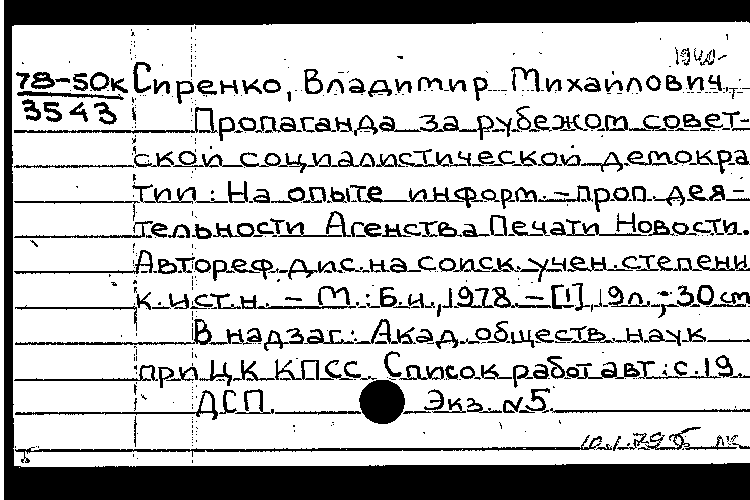 1940-
78-50к Сиренко, Владимир Михайлович,
3543
Пропаганда за рубежом совет-
ской социалистической демокра
тии: На опыте информ.-проп. дея-
тельности Агенства Печати Новости.
Автореф. дис. на соиск. учен. степени
к. ист. н. - М.: Б. и., 1978. - [1], 19 л.; 30 см
В надзаг.: Акад. обществ. наук
при ЦК КПСС. Список работ авт.: с. 19.
ДСП. Экз. №5.
10.1.79